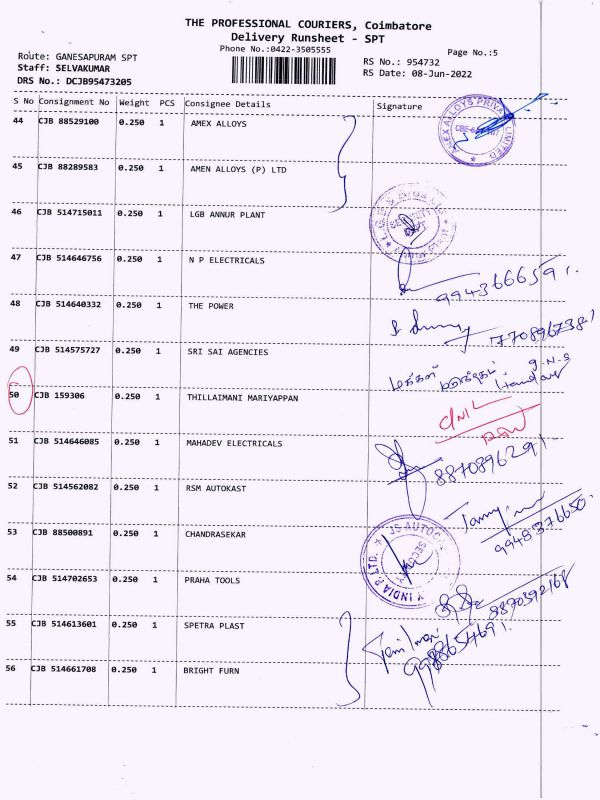 THE PROFESSIONAL COURIERS, Coimbatore
Delivery Runsheet - SPT
Phone No.:0422-3505555
Page No.:5
Route: GANESAPURAM SPT
Staff: SELVAKUMAR
DRS No.: DCJB95473205
RS No.: 954732
RS Date: 08-Jun-2022
S No Consignment No Weight PCS Consignee Details Signature
44 CJB 88529100 0.250 1 AMEX ALLOYS
AMEX ALLOYS PRIVATE LIMITED
45 CJB 88289583 0.250 1 AMEN ALLOYS (P) LTD
46 CJB 514715011 0.250 1 LGB ANNUR PLANT
47 CJB 514646756 0.250 1 N P ELECTRICALS
9943666591.
48 CJB 514640332 0.250 1 THE POWER
49 CJB 514575727 0.250 1 SRI SAI AGENCIES
50 CJB 159306 0.250 1 THILLAIMANI MARIYAPPAN
51 CJB 514646085 0.250 1 MAHADEV ELECTRICALS
8870896291.
52 CJB 514562082 0.250 1 RSM AUTOKAST
9948376650.
53 CJB 88500891 0.250 1 CHANDRASEKAR
54 CJB 514702653 0.250 1 PRAHA TOOLS
8870392168
55 CJB 514613601 0.250 1 SPETRA PLAST
56 CJB 514661708 0.250 1 BRIGHT FURN